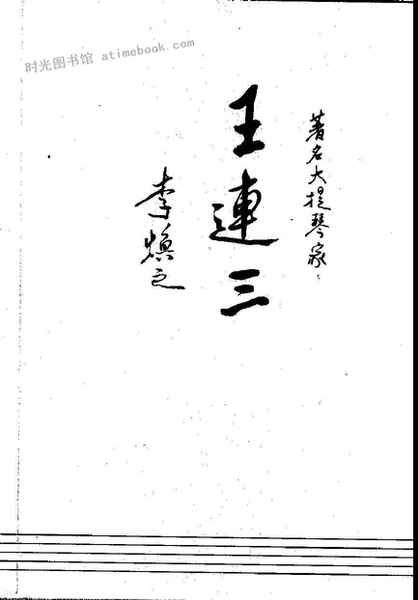 时光图书馆 atimebook.com
著名大提琴家：
王連三
李焕之